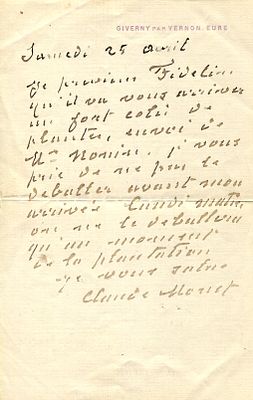 GIVERNY PAR VERNON. EURE
Samedi 25 avril
Je préviens Fidelin
qu'il va vous arriver
un fort colis de
plantes, envoi de
Mr Nonin. Je vous
prie de ne pas le
deballer avant mon
arrivée lundi matin,
on ne le deballera
qu'au moment
de la plantation
Je vous salue
Claude Monet